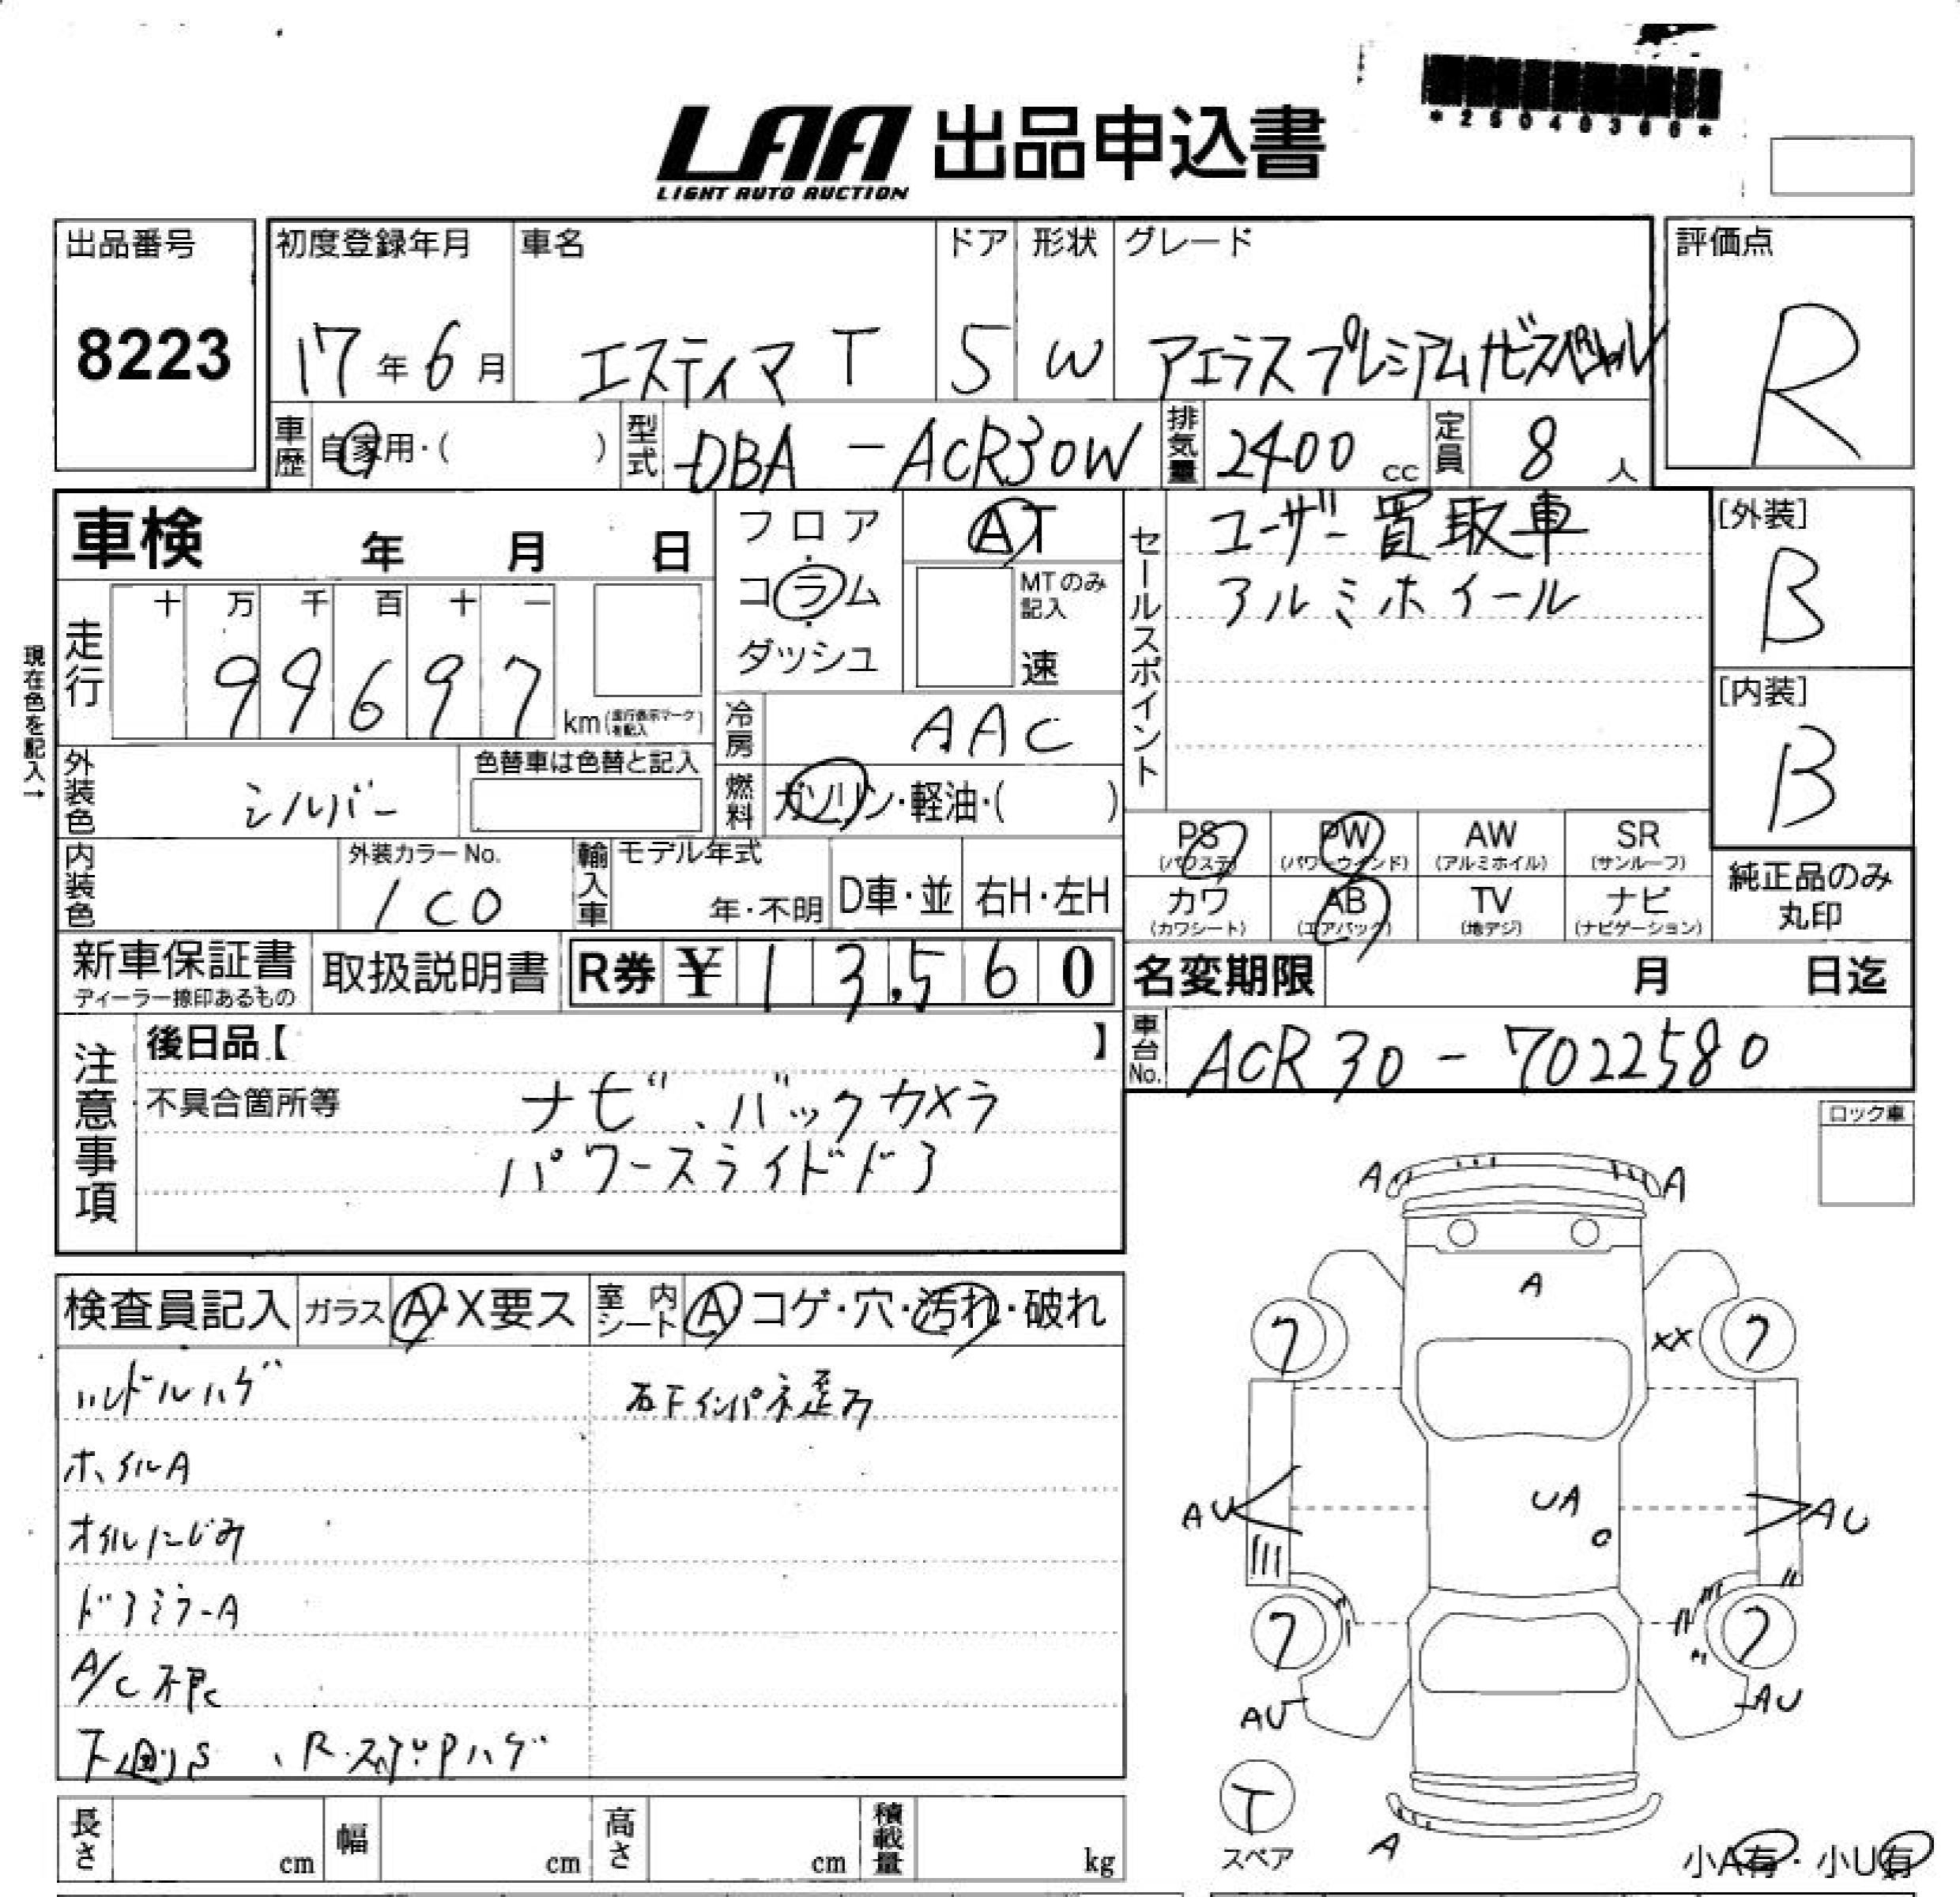 *25040366*
LAA 出品申込書
LIGHT AUTO AUCTION
出品番号
8223
初度登録年月
17年6月
車名
エスティマ T
ドア
5
形状
W
グレード
アエラスプレミアムナビスペシャル
評価点
R
車歴
自家用・( )
型式
DBA-ACR30W
排気量
2400 cc
定員
8 人
車検 年 月 日
現在色を記入→
走行
十 万 千 百 十 一
99697
km(走行表示マークを記入)
フロア
コラム
ダッシュ
AT
MTのみ記入
速
冷房
AAC
燃料
ガソリン・軽油・( )
セールスポイント
ユーザー買取車
アルミホイール
[外装]
B
[内装]
B
外装色
シルバー
色替車は色替と記入
内装色
外装カラーNo.
1C0
輸入車
モデル年式
年・不明
D車・並
右H・左H
PS
(パワステ)
PW
(パワーウインド)
AW
(アルミホイル)
SR
(サンルーフ)
カワ
(カワシート)
AB
(エアバック)
TV
(地デジ)
ナビ
(ナビゲーション)
純正品のみ
丸印
新車保証書
ディーラー捺印あるもの
取扱説明書
R券 ¥ 13,560
名変期限 月 日迄
車台No.
ACR30-7022580
注意事項
後日品【 】
不具合箇所等
ナビ、バックカメラ
パワースライドドア
ロック車
検査員記入
ガラス
A・X要ス
室内シート
A コゲ・穴・汚れ・破れ
ハンドルハゲ
右下インパネ歪み
ホイルA
オイルにじみ
ドアミラーA
A/C不良
下回りS、R.ステップPハゲ
A
A
A
7
XX
7
AU
UA
AU
7
7
AU
AU
T
スペア
A
小A有・小U有
長さ cm
幅 cm
高さ cm
積載量 kg